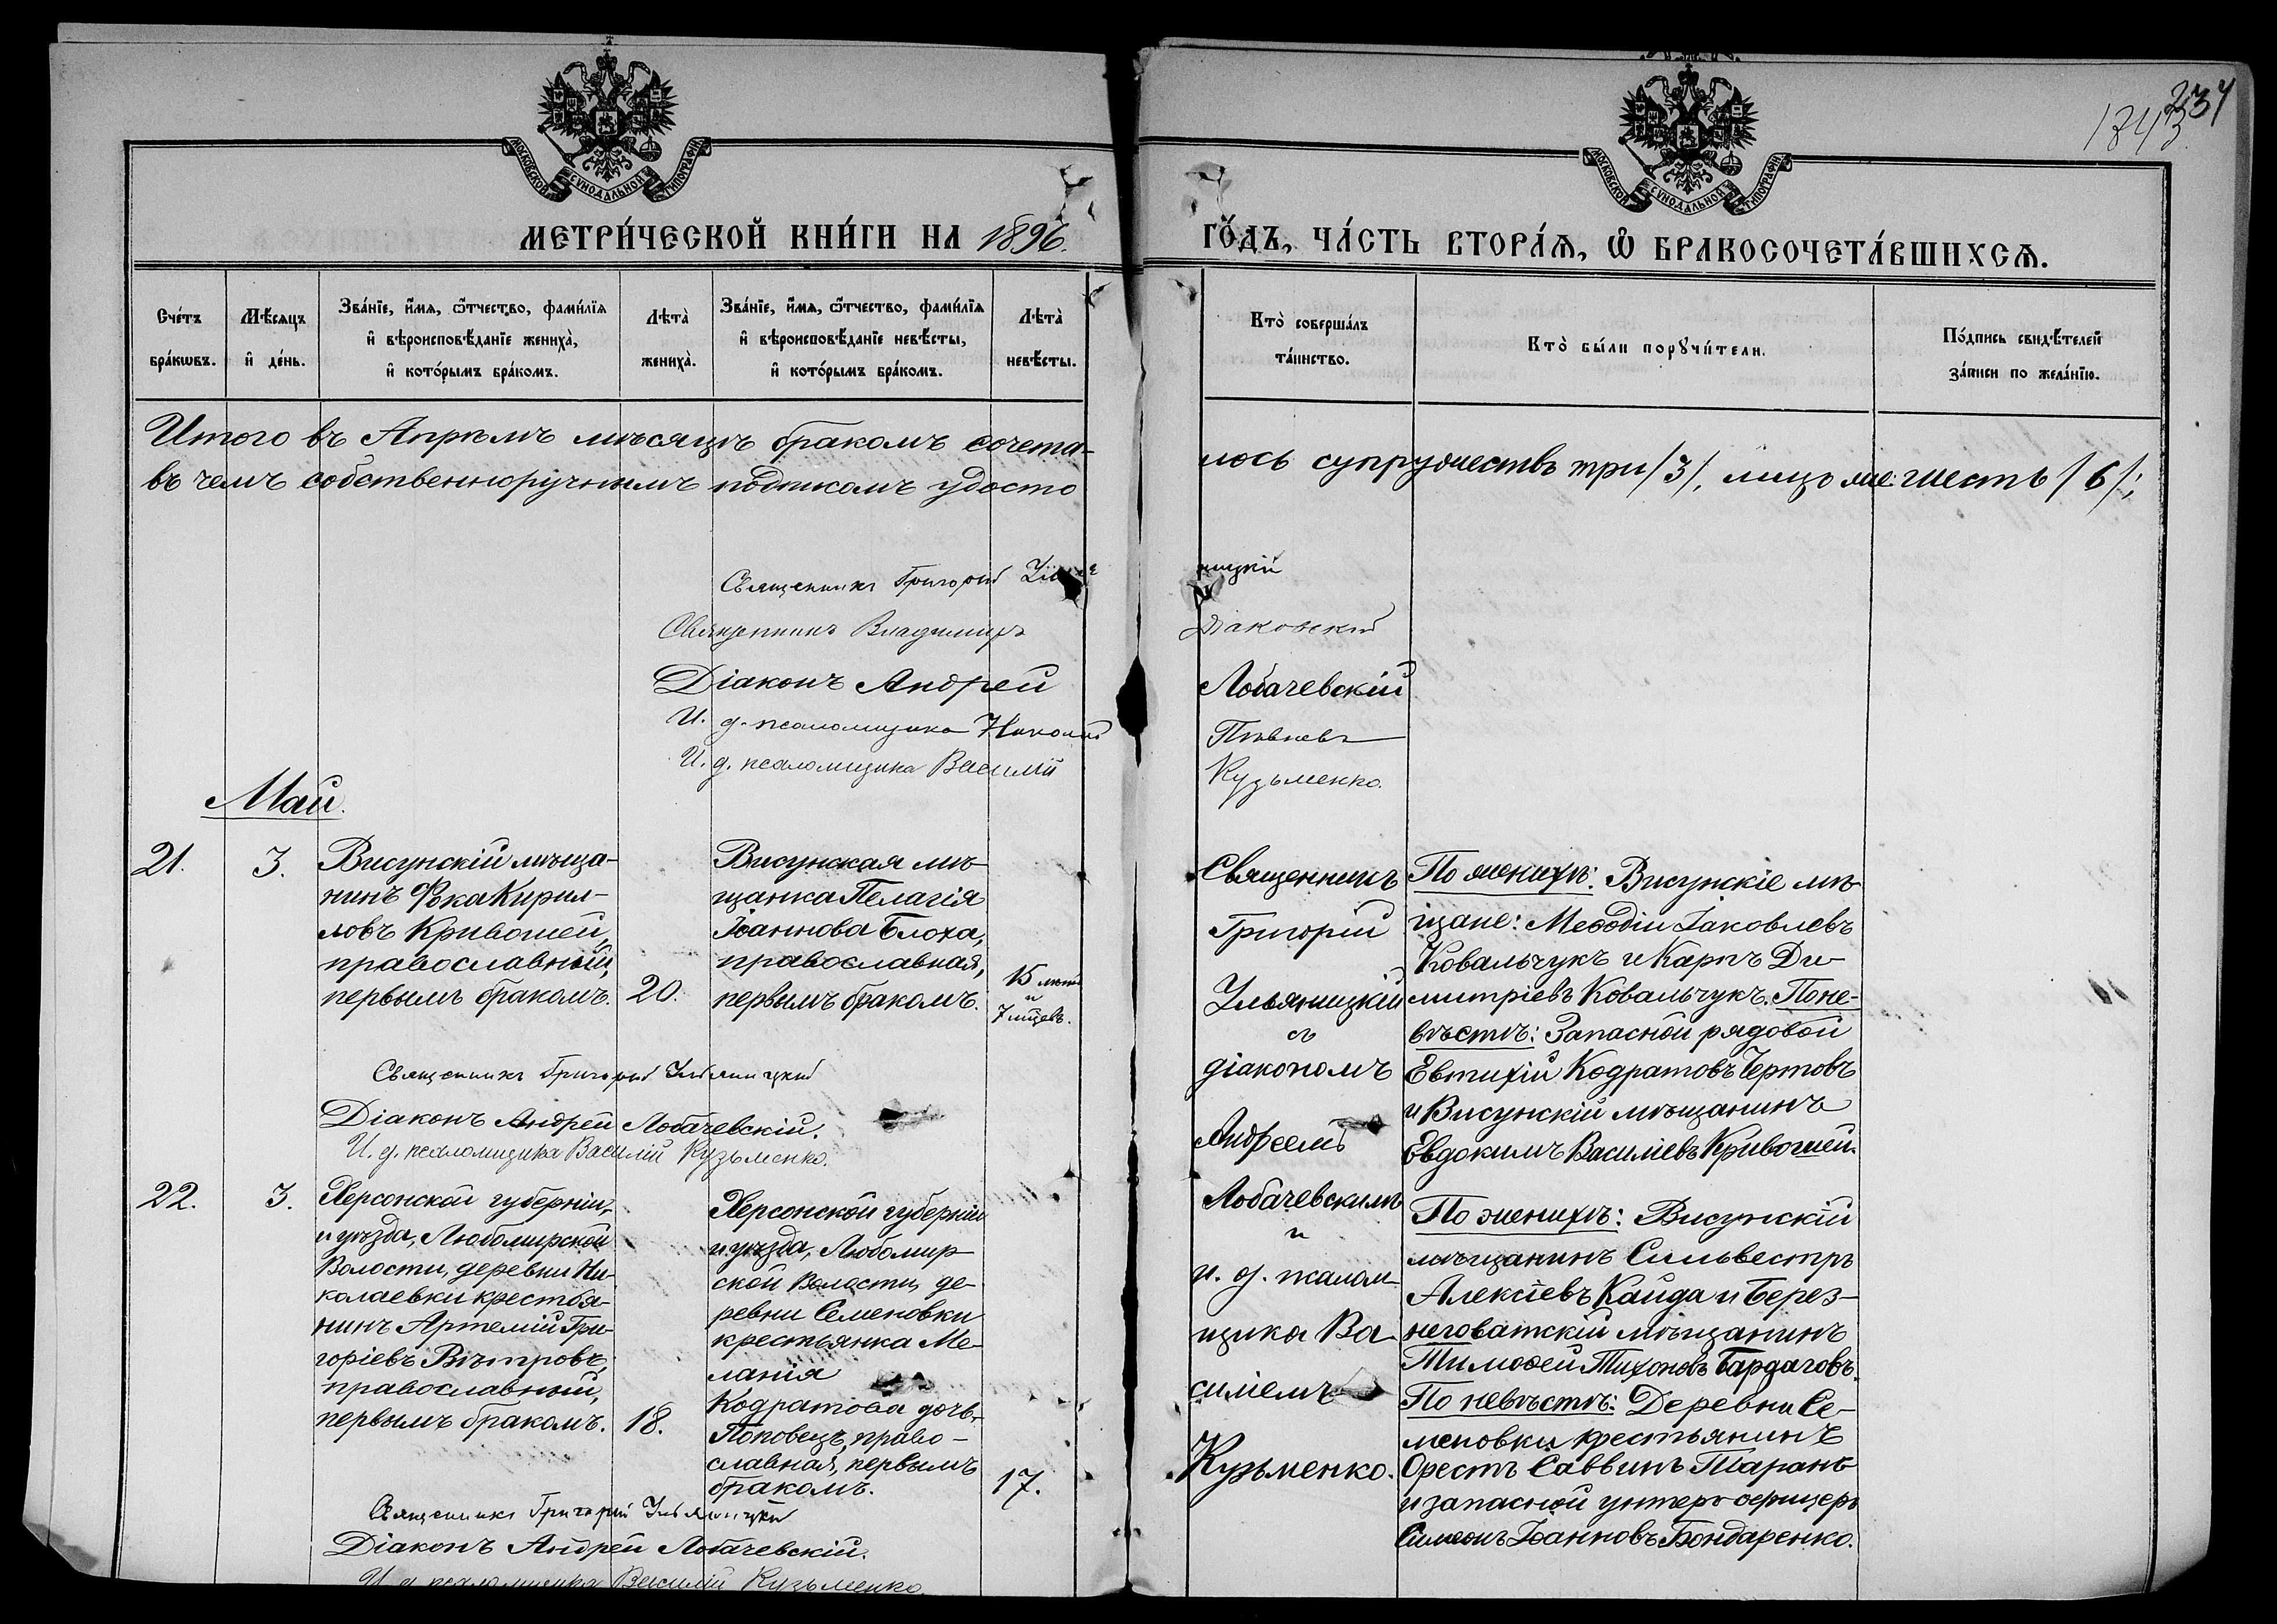 МОСКОВСКОЙ СѴНОДАЛЬНОЙ ТИПОГРАФІИ
МОСКОВСКОЙ СѴНОДАЛЬНОЙ ТИПОГРАФІИ
237
1743
МЕТРИ́ЧЕСКОЙ КНИ́ГИ НА 1896.
ГО́ДЪ, ЧА́СТЬ ВТОРА́Ѧ, Ѽ БРАКОСОЧЕТА́ВШИХСѦ.
Сче́тъ
бра́кѡвъ.
Мѣ́сяцъ
и҆ де́нь.
Зва́нїе, и҆́мѧ, ѻ҆́тчество, фами́лїѧ
и҆ вѣроисповѣ́данїе жениха̀,
и҆ кото́рымъ бра́комъ.
Лѣта̀
жениха̀.
Зва́нїе, и҆́мѧ, ѻ҆́тчество, фами́лїѧ
и҆ вѣроисповѣ́данїе невѣ́сты,
и҆ кото́рымъ бра́комъ.
Лѣта̀
невѣ́сты.
Кто̀ соверша́лъ
та́инство.
Кто̀ бы́ли порꙋчи́тели.
По́дпись свидѣ́телей
за́писи по жела́нїю.
Итого въ Апрѣлѣ мѣсяцѣ бракомъ сочета-
лось супружествъ три /3/, лицъ же шесть /6/;
въ чемъ собственноручнымъ подпискомъ удосто
Священникъ Григорій
ницкій
Священникъ Владимиръ
Діаковскій
Діаконъ Андрей
Лобачевскій
И. д. псаломщика Николай
Пѣвневъ
И. д. псаломщика Василій
Кузьменко.
Май.
21.
3.
Висунскій мѣща-
нинъ Фока Кирил-
ловъ Кривошей,
православный,
первымъ бракомъ.
20.
Висунская мѣ-
щанка Пелагія
Іоаннова Блоха,
православная,
первымъ бракомъ.
15 лѣтъ
и
7 мѣцевъ.
Священникъ Григорій Ульяницкій
Діаконъ Андрей Лобачевскій.
И. д. псаломщика Василій Кузьменко.
Священникъ
Григорій
Ульяницкій
съ
діакономъ
Андреемъ
Лобачевскимъ
и
и. д. псалом-
щика Ва-
силіемъ
Кузьменко.
По женихѣ: Висунскіе мѣ-
щане: Меѳодій Іаковлевъ
Ковальчукъ и Карпъ Ди-
митріевъ Ковальчукъ. По не-
вѣстѣ: Запасной рядовой
Евтихій Кодратовъ Чертовъ
и Висунскій мѣщанинъ
Евдокимъ Василіевъ Кривошей.
22.
3.
Херсонской губерніи,
и уѣзда, Любомирской
Волости, деревни Ни-
колаевки крестья-
нинъ Артемій Гри-
горіевъ Вѣтровъ,
православный,
первымъ бракомъ.
18.
Херсонской губерніи
и уѣзда, Любомир-
ской Волости, де-
ревни Семеновки
крестьянка Ме-
ланія
Кодратова дочь,
Поповецъ, право-
славная, первымъ
бракомъ.
17.
По женихѣ: Висунскій
мѣщанинъ Сильвестръ
Алексѣевъ Кайда и Берез-
неговатскій мѣщанинъ
Тимоѳей Тихоновъ Бардаговъ.
По невѣстѣ: Деревни Се-
меновки крестьянинъ
Орестъ Саввинъ Таранъ
и запасной унтеръ-офицеръ
Симеонъ Іоанновъ Бондаренко.
Священникъ Григорій Ульяницкій
Діаконъ Андрей Лобачевскій.
И. д. псаломщика Василій Кузьменко.